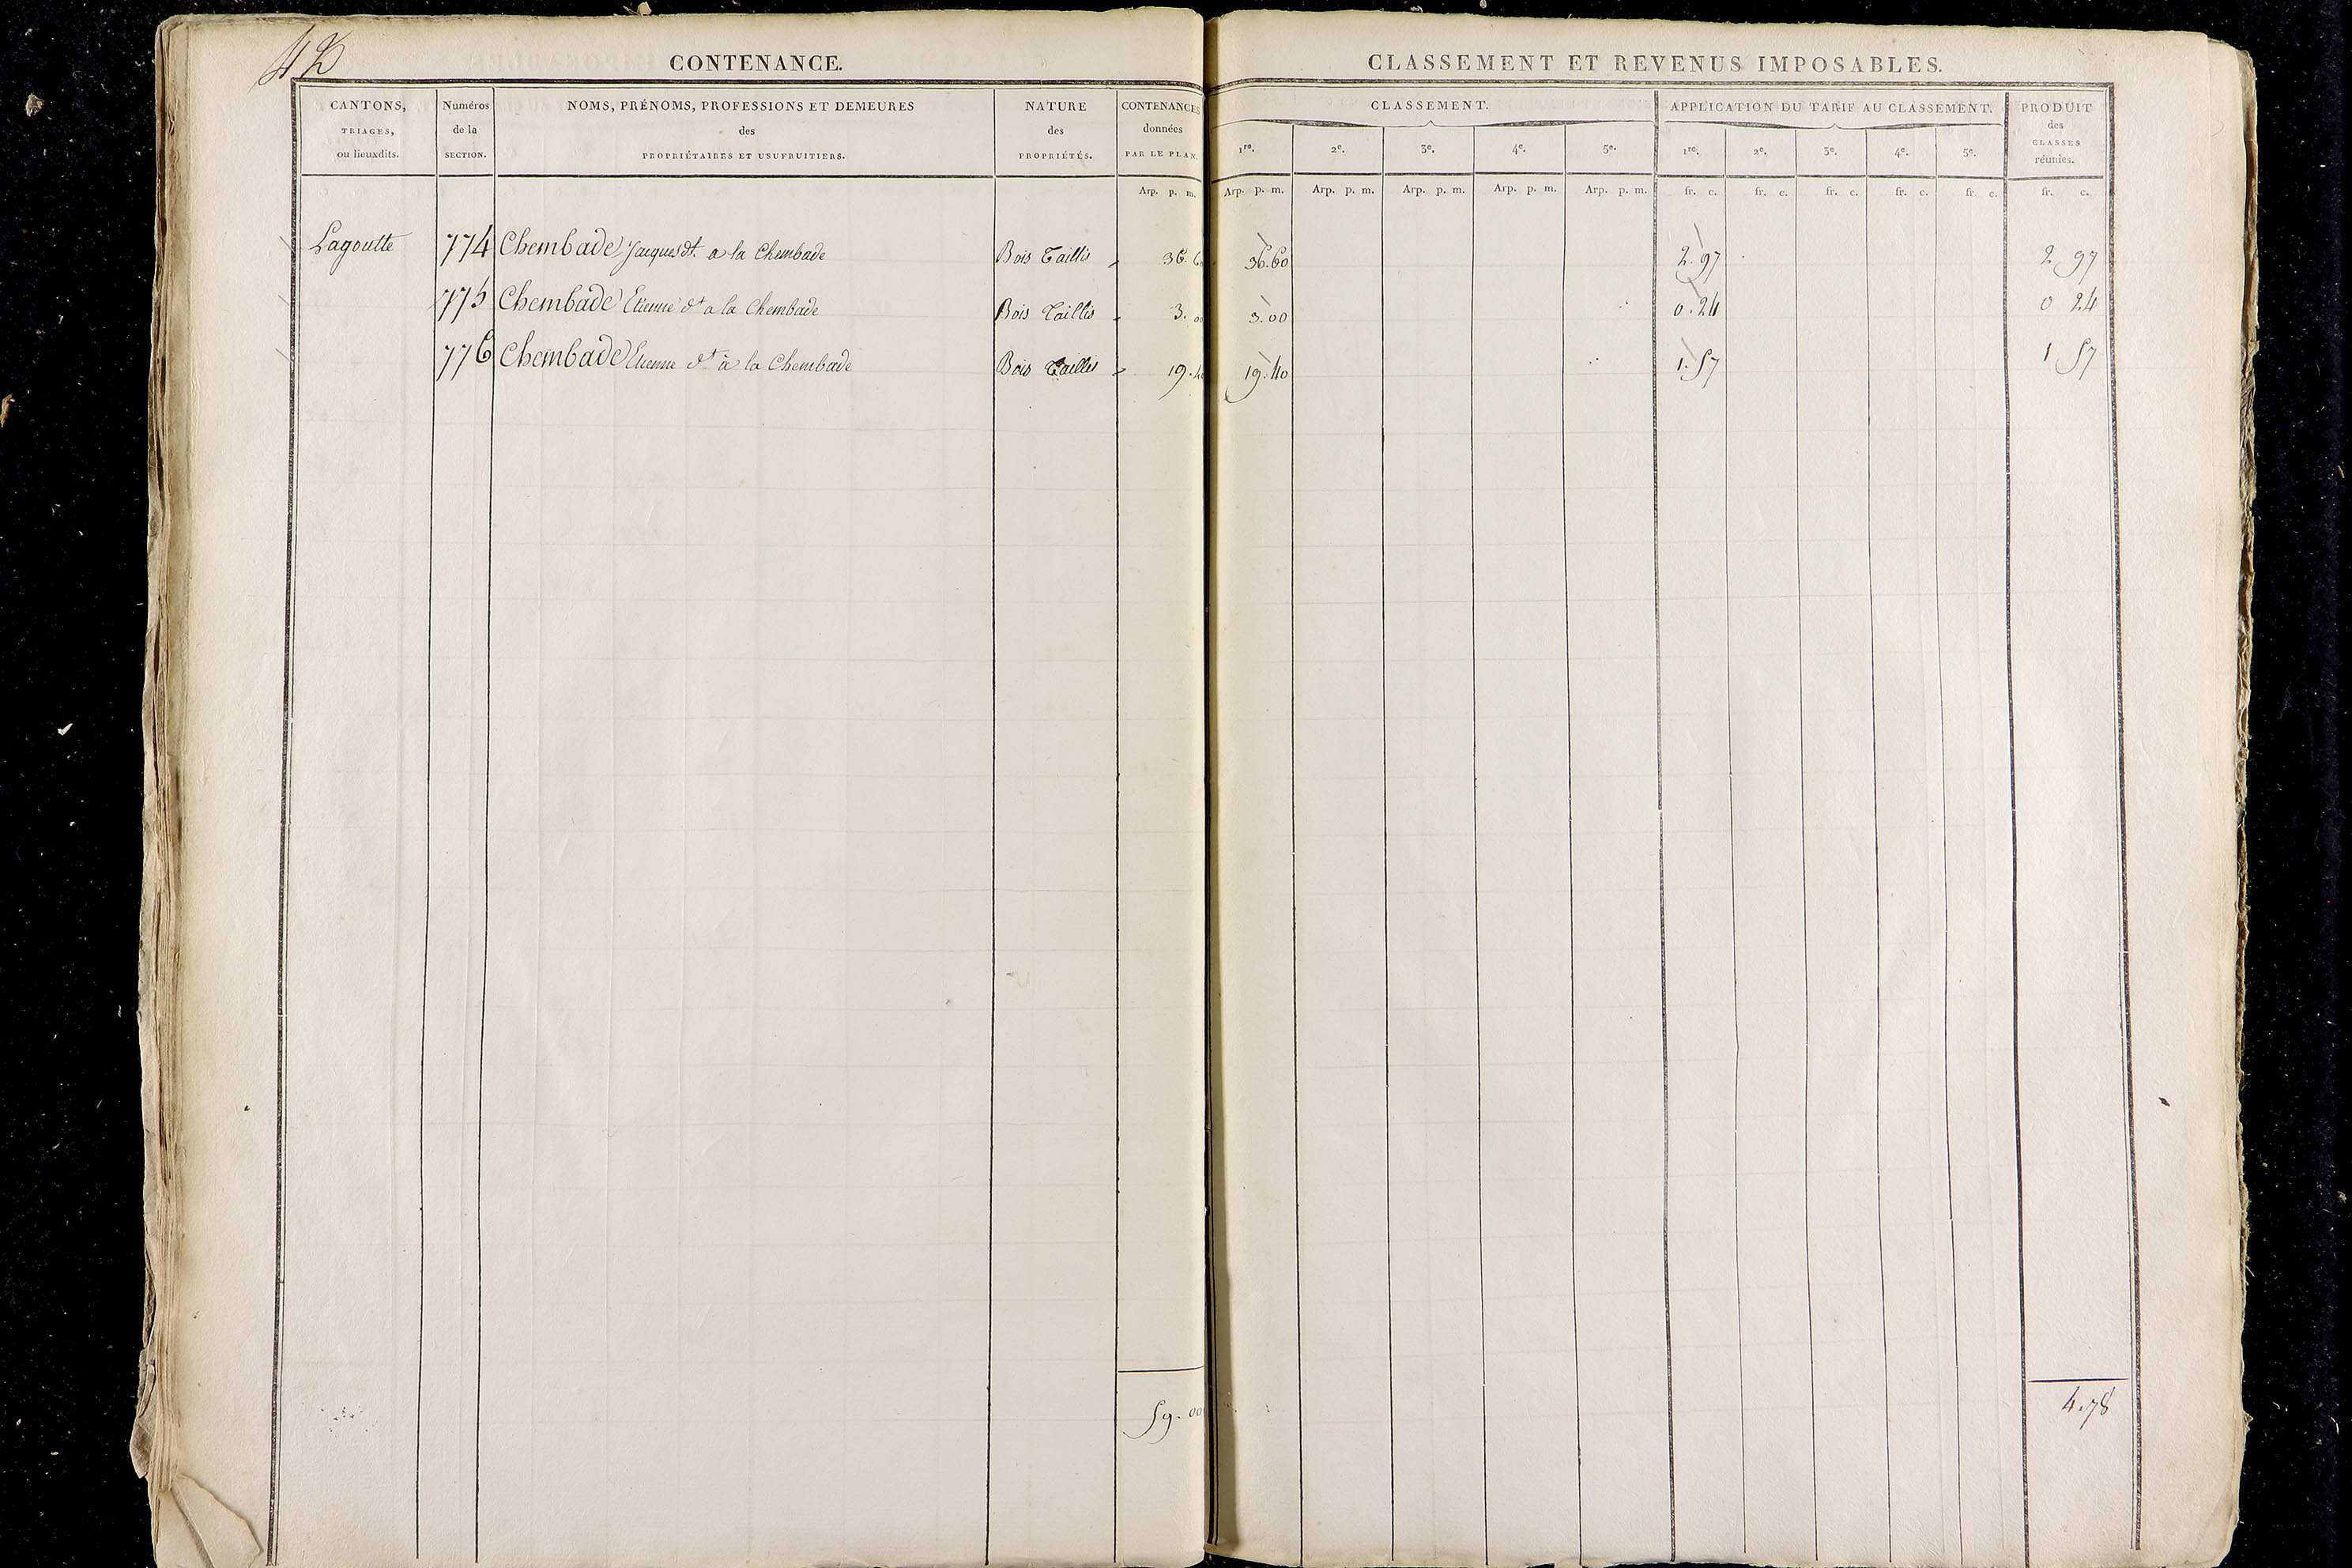 42
CONTENANCE.
CANTONS,
TRIAGES,
ou lieuxdits.
Numéros
de la
SECTION.
NOMS, PRÉNOMS, PROFESSIONS ET DEMEURES
des
PROPRIÉTAIRES ET USUFRUITIERS.
NATURE
des
PROPRIÉTÉS.
CONTENANCES
données
PAR LE PLAN.
Arp. p. m.
Lagoutte 774 Chembade Jacques dt. a la Chembade Bois Taillis 36. 6
775 Chembade Etienne dt a la Chembade Bois Taillis 3. 00
776 Chembade Etienne dt à la Chembade Bois Taillis 19. 4
59. 00
CLASSEMENT ET REVENUS IMPOSABLES.
CLASSEMENT.
1re. 2e. 3e. 4e. 5e.
APPLICATION DU TARIF AU CLASSEMENT.
1re. 2e. 3e. 4e. 5e.
PRODUIT
des
CLASSES
réunies.
Arp. p. m. Arp. p. m. Arp. p. m. Arp. p. m. Arp. p. m. fr. c. fr. c. fr. c. fr. c. fr. c. fr. c.
36.60 2.97 2 97
3.00 0.24 0 24
19.40 1.57 1 57
4.78